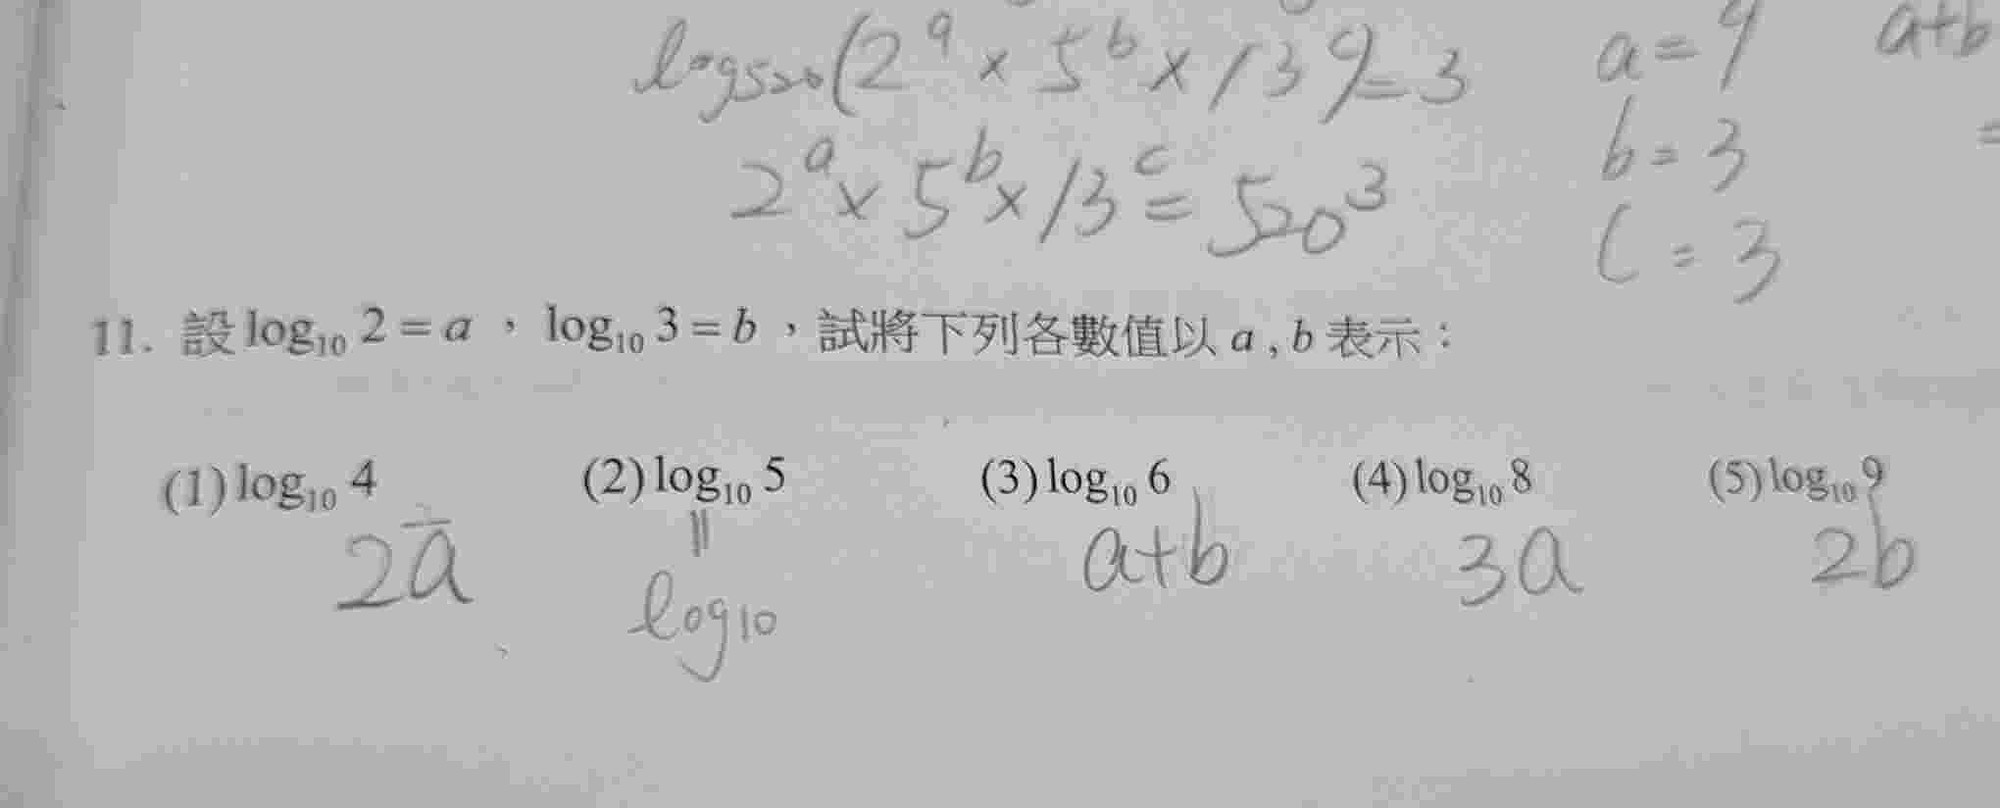 log₅₂₀(2ᵃ × 5ᵇ × 13ᶜ) = 3 a = 9 a+b
2ᵃ × 5ᵇ × 13ᶜ = 520³ b = 3 =
c = 3
11. 設 log₁₀ 2 = a ， log₁₀ 3 = b ，試將下列各數值以 a , b 表示：
(1) log₁₀ 4 (2) log₁₀ 5 (3) log₁₀ 6 (4) log₁₀ 8 (5) log₁₀ 9
2a = a+b 3a 2b
log₁₀